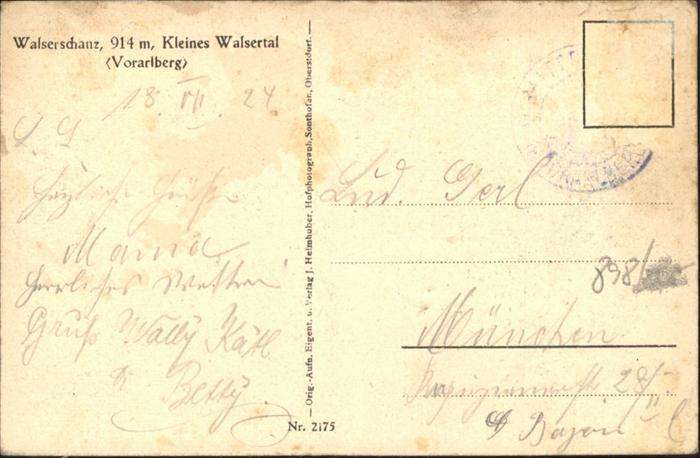 Walserschanz, 914 m, Kleines Walsertal
(Vorarlberg)
18. VII. 24
L. L.
Herzliche Grüße
Mama
Herrliches Wetter
Gruß Wally Kätl
Betty.
Orig.-Aufn. Eigent. u. Verlag J. Heimhuber, Hofphotograph, Sonthofen, Oberstdorf.
Nr. 2175
Lud. Gerl
898/
München
28/
II
Bayern